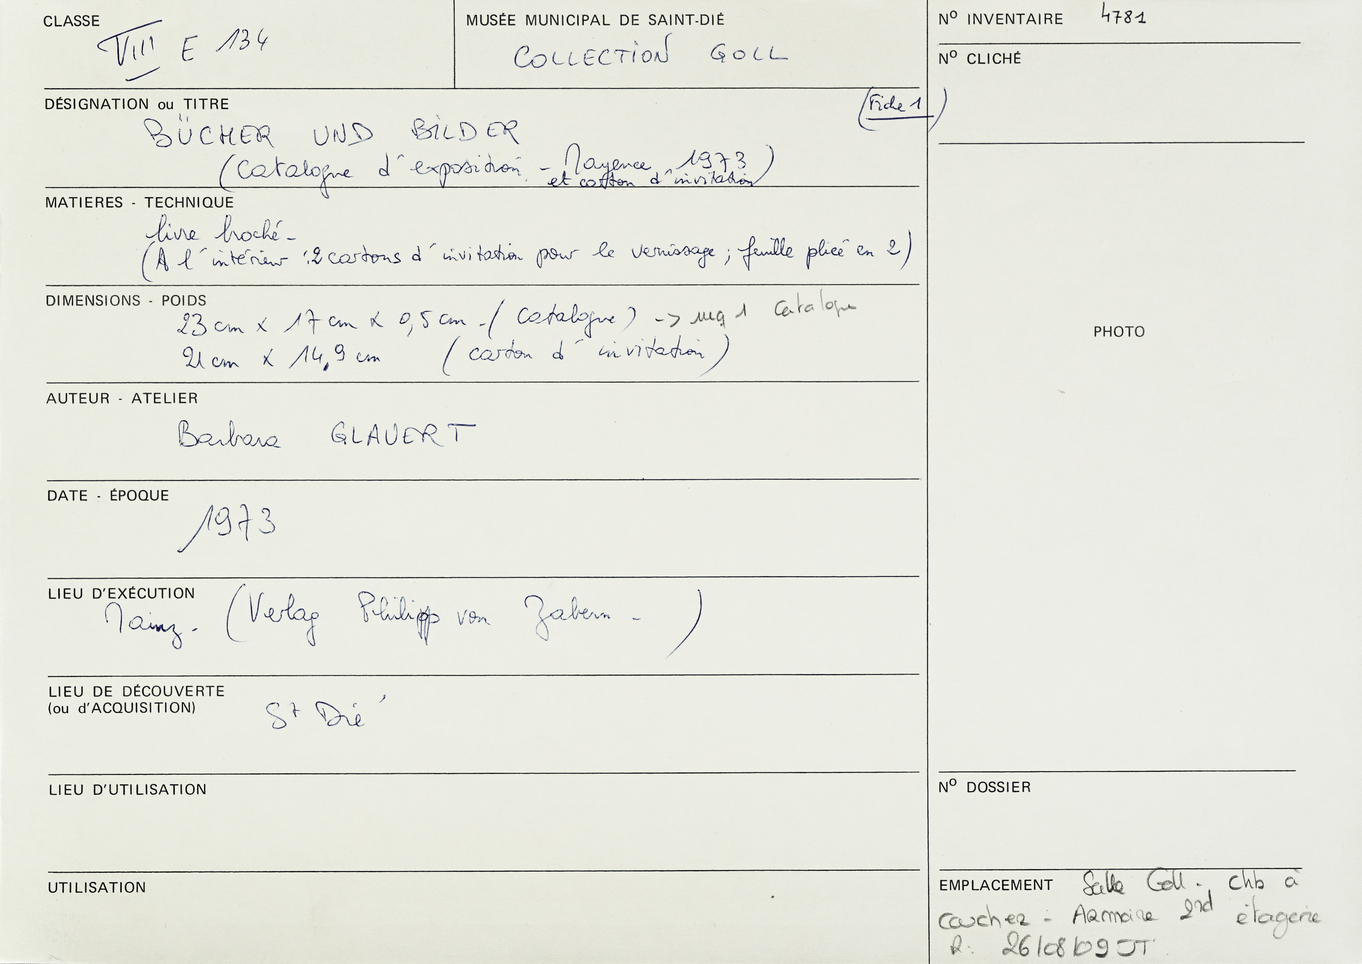 CLASSE
VIII E 134
MUSÉE MUNICIPAL DE SAINT-DIÉ
COLLECTION GOLL
Nº INVENTAIRE 4781
Nº CLICHÉ
DÉSIGNATION ou TITRE
(Fiche 1)
BÜCHER UND BILDER
(Catalogue d'exposition - Mayence, 1973)
et carton d'invitation
MATIERES - TECHNIQUE
livre broché -
(A l'intérieur : 2 cartons d'invitation pour le vernissage ; feuille pliée en 2)
DIMENSIONS - POIDS
23 cm x 17 cm x 0,5 cm - (Catalogue) -> mq 1 Catalogue
21 cm x 14,9 cm (carton d'invitation)
PHOTO
AUTEUR - ATELIER
Barbara GLAUERT
DATE - ÉPOQUE
1973
LIEU D'EXÉCUTION
Mainz - (Verlag Philipp von Zabern - )
LIEU DE DÉCOUVERTE
(ou d'ACQUISITION)
St Dié
LIEU D'UTILISATION
Nº DOSSIER
UTILISATION
EMPLACEMENT Salle Goll - chb à
coucher - Armoire 2nd étagère
R: 26/08/09 JT